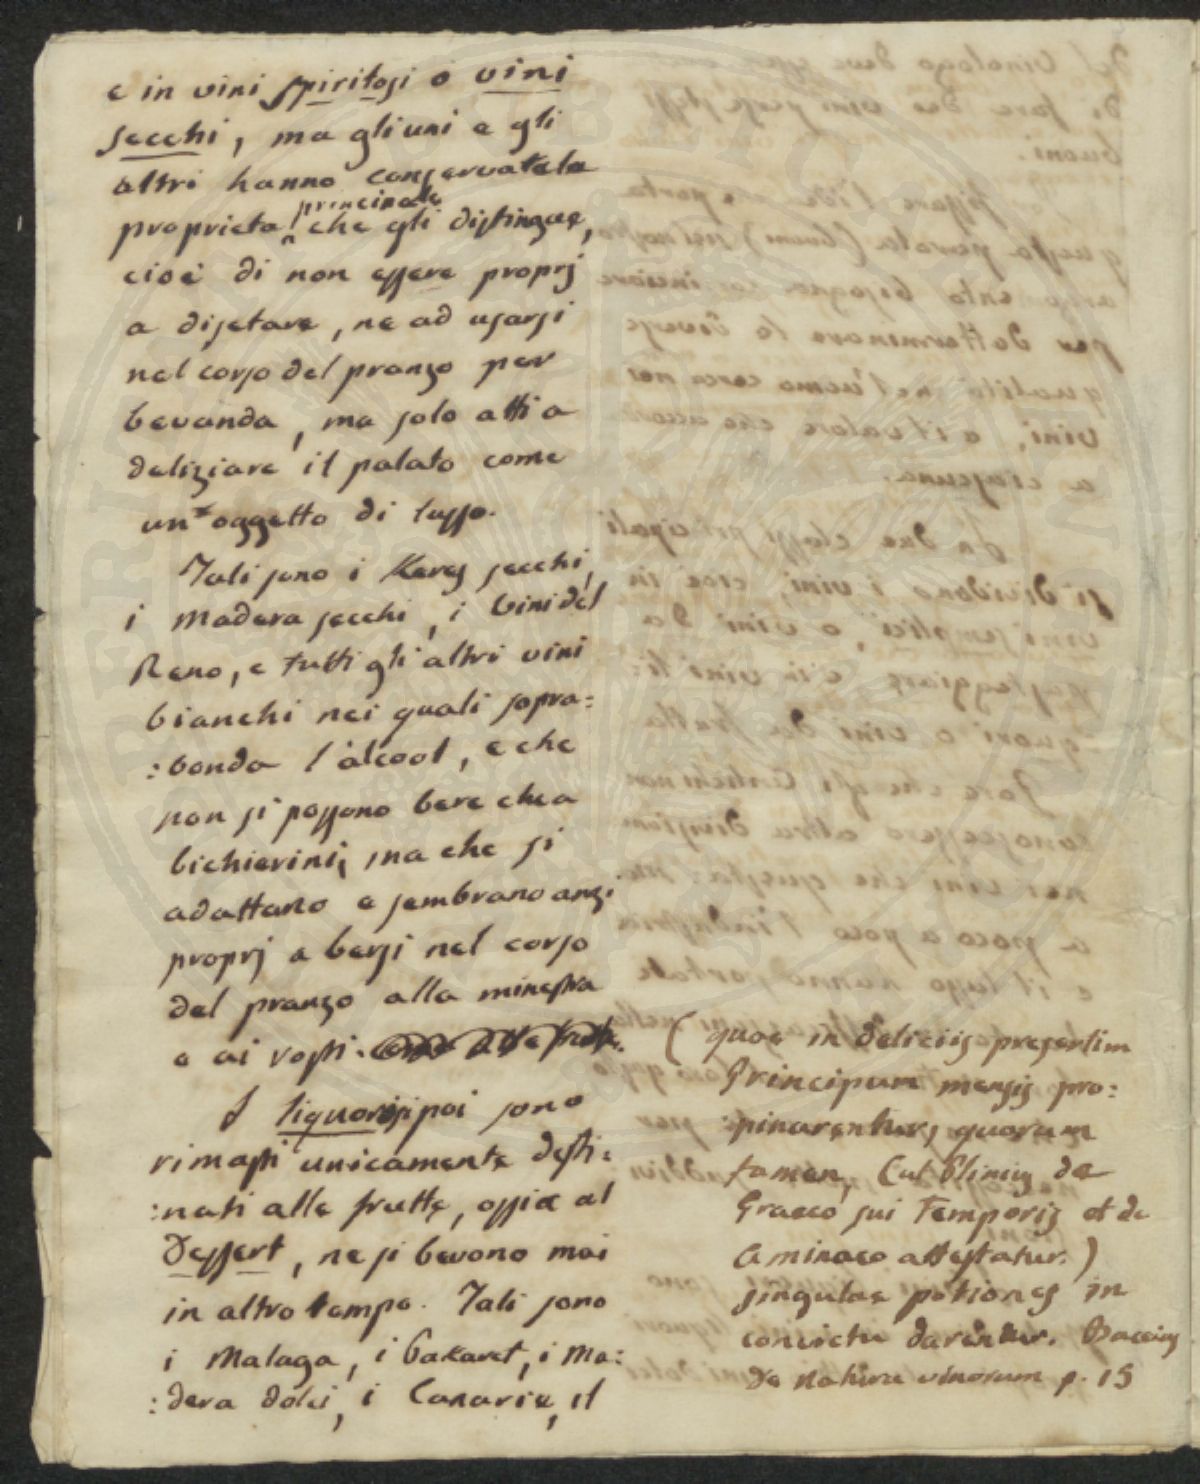 e in vini spiritosi o vini
secchi, ma gli uni e gli
altri hanno conservate la
proprieta principale che gli distingue,
cioè di non essere proprj
a disetare, ne ad usarsi
nel corso del pranzo per
bevanda, ma solo atti a
deliziare il palato come
un oggetto di lusso.
Tali sono i Xeres secchi,
i Madera secchi, i vini del
Reno, e tutti gli altri vini
bianchi nei quali sopra=
:bonda l'alcool, e che
non si possono bere che a
bichierini, ma che si
adattano e sembrano anzi
proprj a bersi nel corso
del pranzo alla minestra
e ai rosti.
I liquorosi poi sono
rimasti unicamente desti=
:nati alle frutte, ossia al
Dessert, ne si bevono mai
in altro tempo. Tali sono
i Malaga, i Pakaret, i Ma:
:dera dolci, i Canarie, il
(quae in deliciis presertim
Principum mensis pro=
:pinarentur, quorum
tamen, (ut Plinius de
Graeco sui Temporis et de
Aminaeo attestatur.)
singulae potiones in
convictu darentur. Baccius
de natura vinorum p. 15